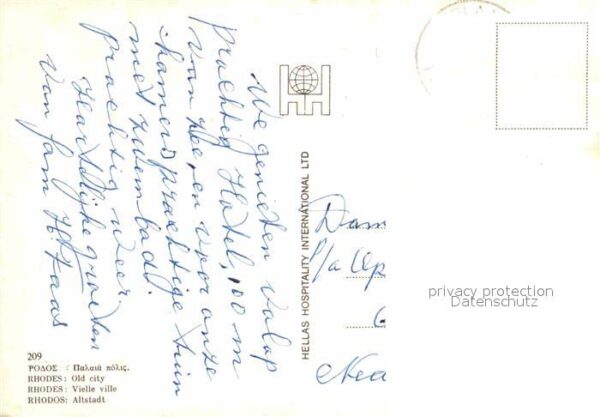 We genieten volop
prachtig Hotel, 100 m
van zee, en voor onze
kamers prachtige tuin
met zwembad.
prachtig weer.
Hartelijke groeten
van fam H. Faas
HH
HELLAS HOSPITALITY INTERNATIONAL LTD
Dam
P/a
Nea
privacy protection
Datenschutz
209
ΡΟΔΟΣ : Παλαιά πόλις.
RHODES : Old city
RHODES : Vielle ville
RHODOS: Altstadt